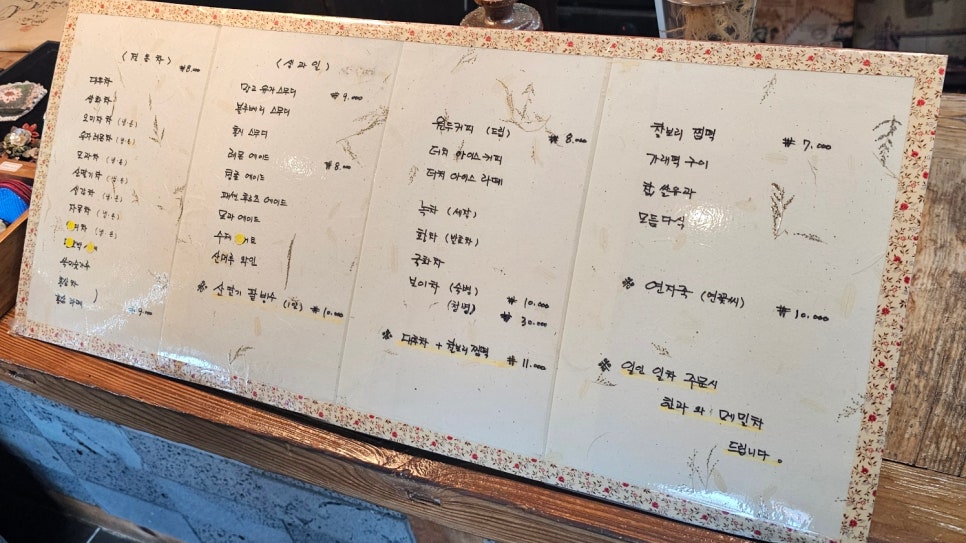 〈전통차〉
₩8.000
대추차
쌍화차
오미자차 (냉.온)
유자레몬차 (냉.온)
모과차 (냉.온)
산딸기차 (냉.온)
생강차 (냉.온)
자몽차 (냉.온)
쑥
₩9.000
〈생과일〉
망고 유자 스무디
₩9.000
블루베리 스무디
딸기 스무디
레몬 에이드
₩8.000
자몽 에이드
패션 후르츠 에이드
모과 에이드
수제
산머루 와인
※ 산딸기 팥빙수 (1인) ₩10.000
원두커피 (드립)
₩8.000
더치 아이스커피
더치 아이스 라떼
녹차 (세작)
황차 (발효차)
국화차
보이차 (숙병) ₩10.000
(청병) ₩30.000
※ 대추차 + 찰보리찜떡 ₩11.000
찰보리 찜떡
₩7.000
가래떡 구이
찹쌀유과
모듬다식
※ 연자죽 (연꽃씨)
₩10.000
※ 일인 일차 주문시
한과 와 메밀차
드립니다.